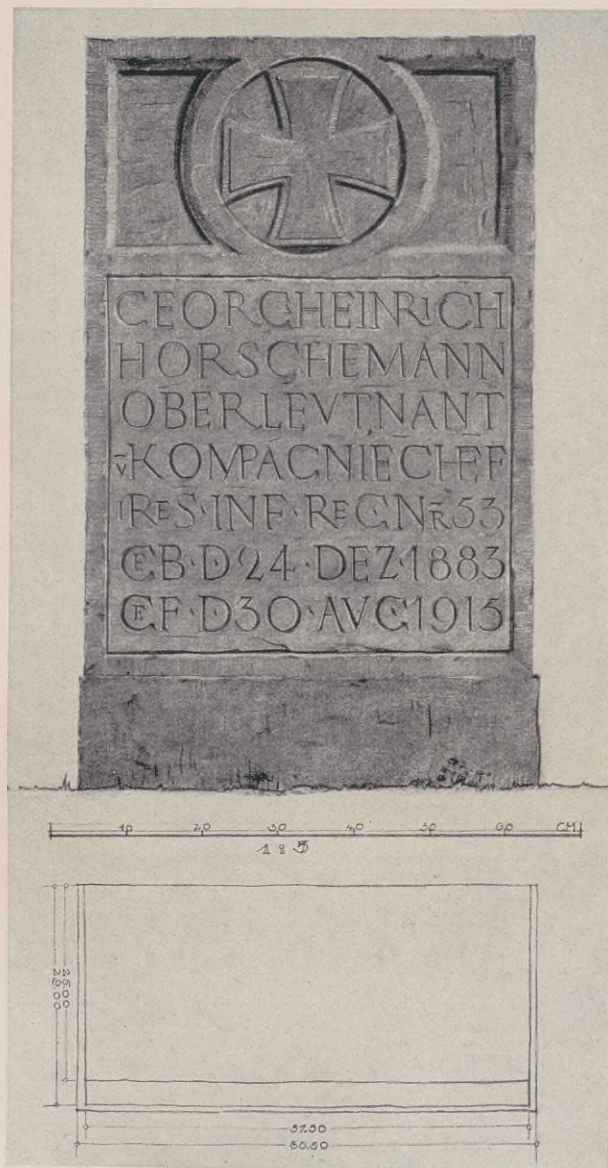 GEORG HEINRICH
HORSCHEMANN
OBERLEVTNANT
V KOMPAGNIECHEF
I RES · INF · REG · NR 53
GEB · D 24 · DEZ · 1883
GEF · D 30 · AVG 1915
10 20 30 40 50 60 CM
1:5
25.00
28.00
57.50
60.50